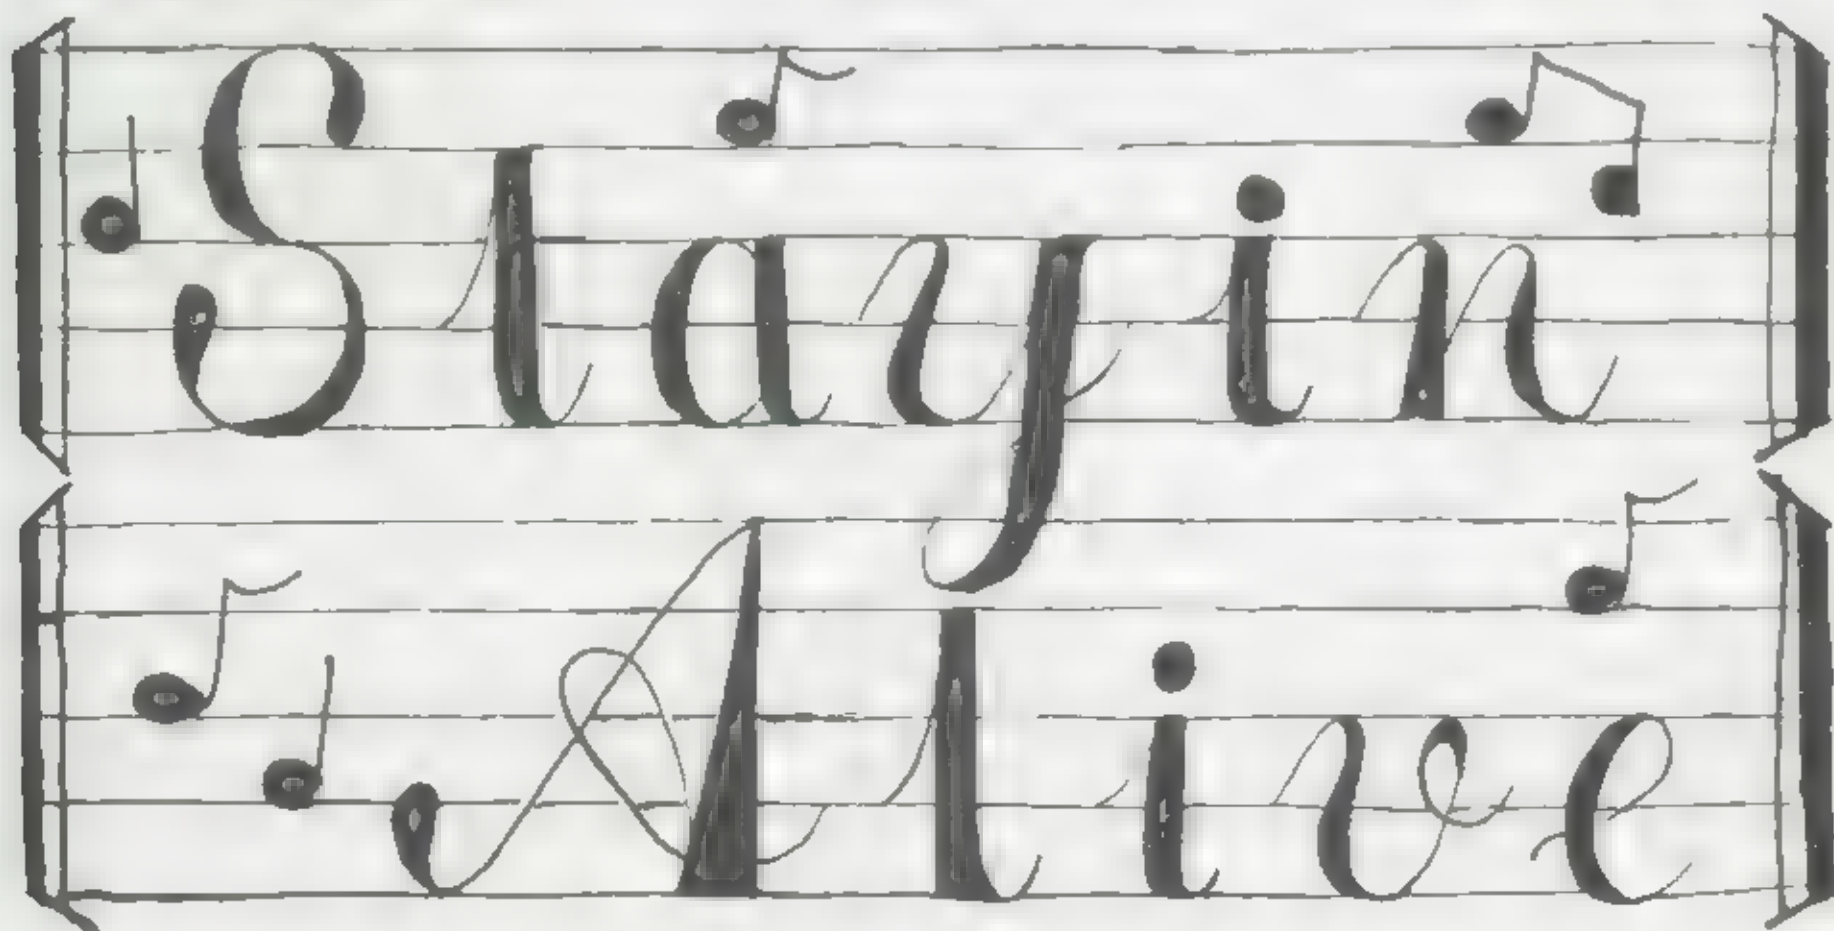 Stayin
Alive